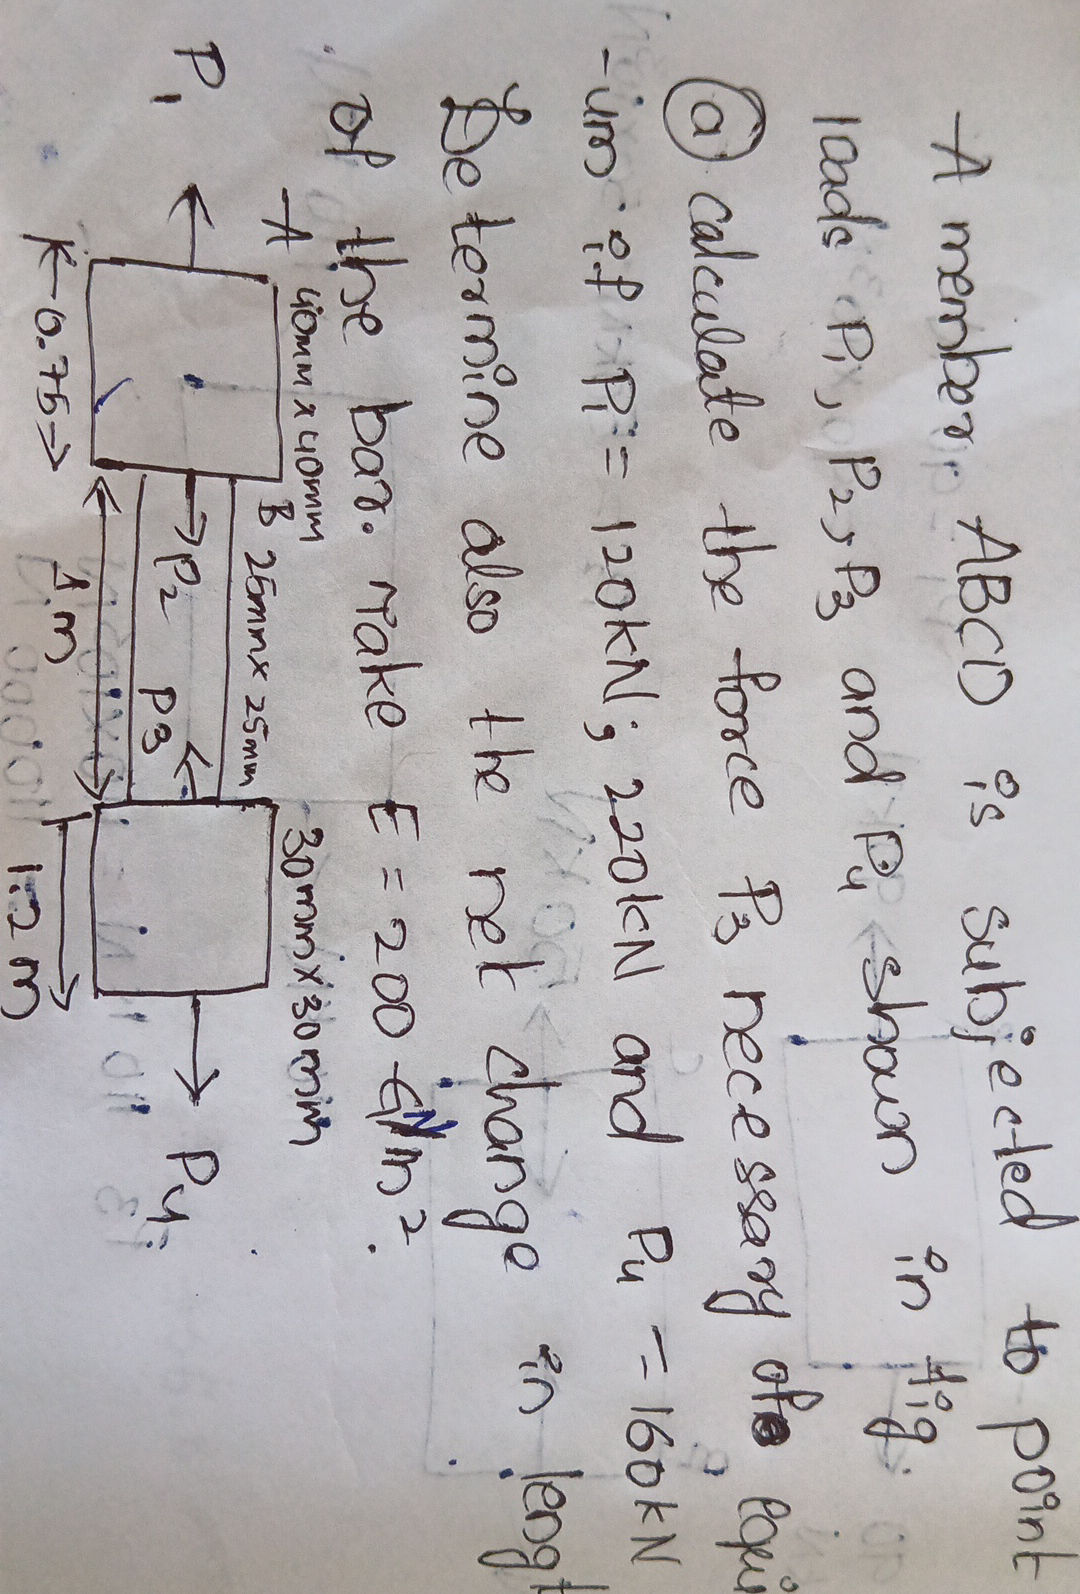 A member ABCD is subjected to point
loads P1, P2, P3 and P4 shown in fig
(a) calculate the force P3 necessary of equi
-um if P1 = 120kN; 220kN and P4 = 160kN
Determine also the net change in lengt
of the bar. Take E = 200 GN/m².
A 40mm x 40mm B 25mm x 25mm 30mm x 30mm
P1 P2 P3 P4
0.75 1m 1.2m